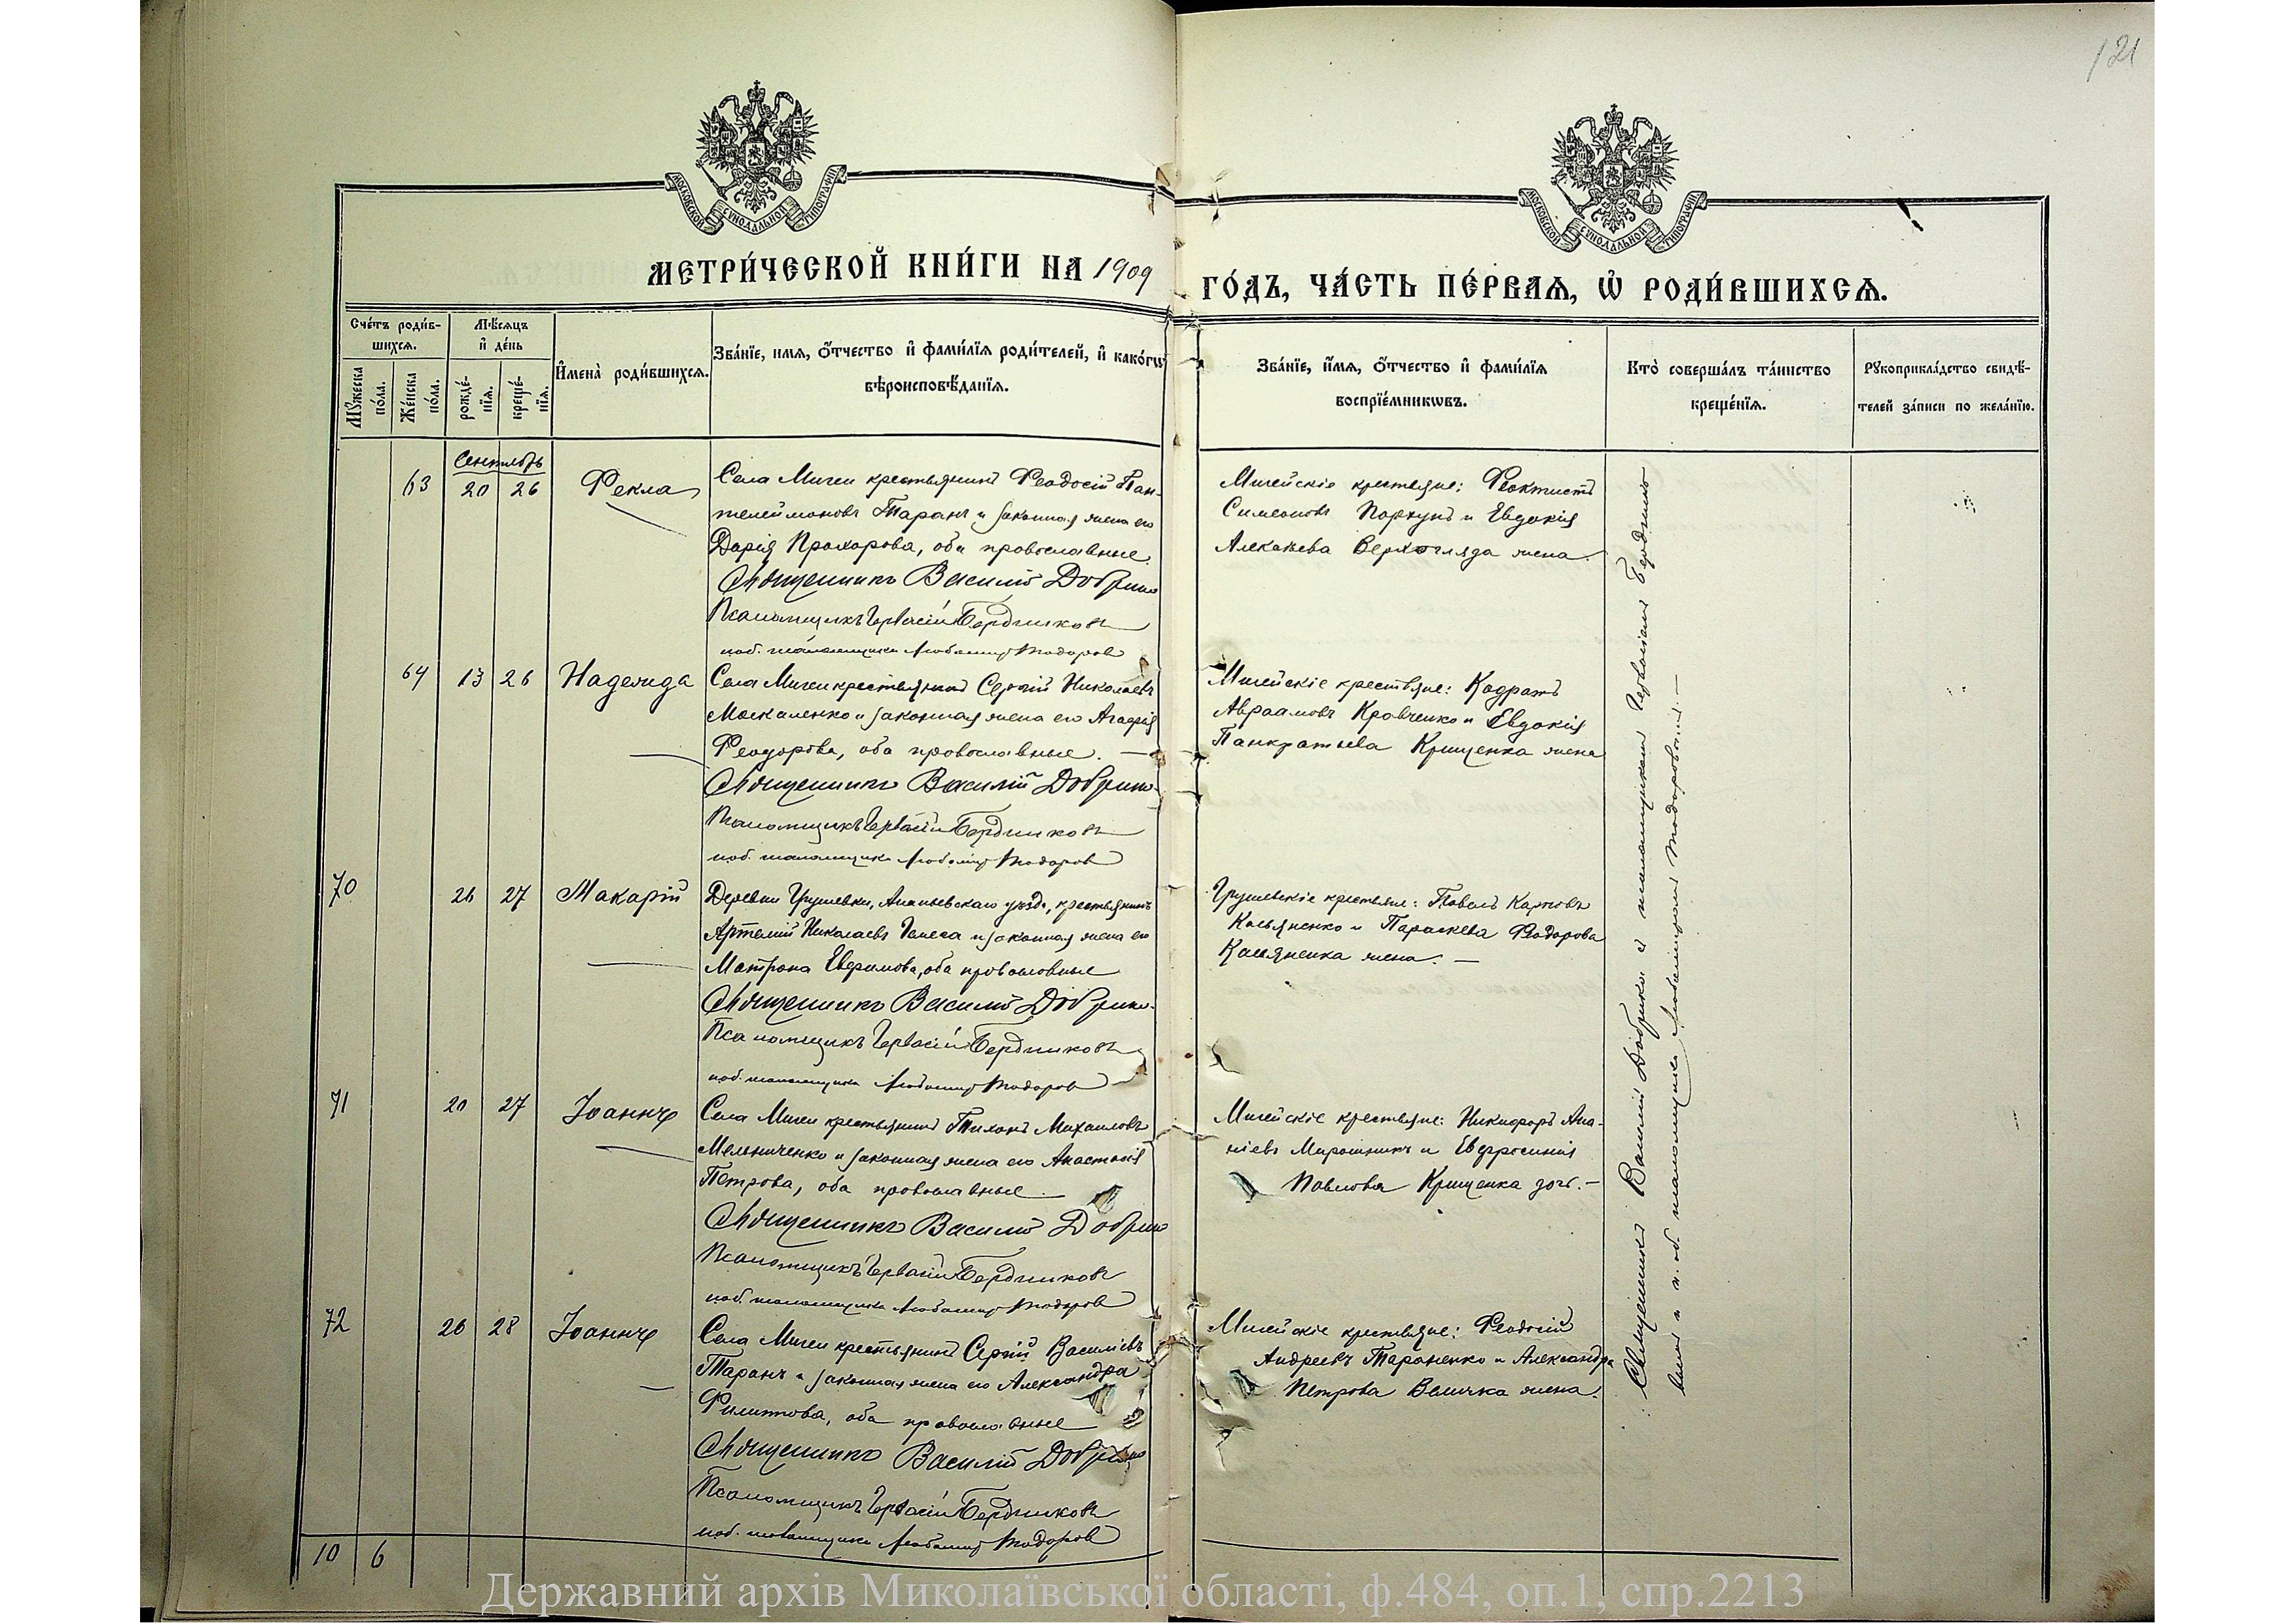 121
МОСКОВСКОЙ СУНОДАЛЬНОЙ ТУПОГРАФІИ
МОСКОВСКОЙ СУНОДАЛЬНОЙ ТУПОГРАФІИ
МЕТРИ́ЧЕСКОЙ КНИ́ГИ НА 1909 ГО́ДЪ, ЧА́СТЬ ПЕ́РВАЯ, Ѡ РОДИ́ВШИХСЯ.
Сче́тъ роди́в-
шихся.
Мѣ́сяцъ
и де́нь
Му́жеска
по́ла.
Же́нска
по́ла.
рожде́-
нїя.
креще́-
нїя.
Имена̀ роди́вшихся.
Зва́нїе, имя, о́тчество и фами́лїя роди́телей, и како́гѡ
вѣроисповѣ́данїя.
Зва́нїе, и́мя, о́тчество и фами́лїя
воспрїе́мникѡвъ.
Кто̀ соверша́лъ та́инство
креще́нїя.
Рукоприкла́дство свидѣ́-
телей за́писи по жела́нїю.
Сентябрь
63 20 26 Фекла
Села Мигеи крестьянинъ Феодосій Пан-
телеймоновъ Таранъ и законная жена его
Дарія Прохорова, оба православные
Священникъ Василій Добрино
Псаломщикъ Гервасій Бердниковъ
и об. псаломщика Любомир Тодоров
Мигейскіе крестьяне: Феоктистъ
Симеоновъ Поркунъ и Евдокія
Алексѣева Верхогляда жена.
64 13 26 Надежда
Села Мигеи крестьянинъ Сергій Николаевъ
Москаленко и законная жена его Агафія
Феодорова, оба православные.
Священникъ Василій Добрино
Псаломщикъ Гервасій Бердниковъ
и об. псаломщика Любомир Тодоров
Мигейскіе крестьяне: Кодратъ
Авраамовъ Кравченко и Евдокія
Панкратьева Крищенка жена
70 26 27 Макарій
Деревни Грушевки, Ананьевскаго уѣзда, крестьянинъ
Артемій Николаевъ и законная жена его
Матрона Евфимова, оба православные
Священникъ Василій Добрино
Псаломщикъ Гервасій Бердниковъ
и об. псаломщика Любомир Тодоров
Грушевскіе крестьяне: Павелъ Карповъ
Касьяненко и Параскева Феодорова
Касьяненка жена.
71 20 27 Іоаннъ
Села Мигеи крестьянинъ Тихонъ Михаиловъ
Мельниченко и законная жена его Анастасія
Петрова, оба православные
Священникъ Василій Добрино
Псаломщикъ Гервасій Бердниковъ
и об. псаломщика Любомир Тодоров
Мигейскіе крестьяне: Никифоръ Ана-
ніевъ Мирошникъ и Евфросинія
Павлова Крищенка дочь.
72 26 28 Іоаннъ
Села Мигеи крестьянинъ Сергій Василіевъ
Таранъ и законная жена его Александра
Филиппова, оба православные
Священникъ Василій Добрино
Псаломщикъ Гервасій Бердниковъ
и об. псаломщика Любомир Тодоров
Мигейскіе крестьяне: Феодосій
Андреевъ Тараненко и Александра
Петрова Величка жена.
Священникъ Василій Добрино съ псаломщикомъ Гервасіемъ Берднико-
вымъ и и. об. псаломщика Любомиромъ Тодоровымъ
10 6
Державний архів Миколаївської області, ф.484, оп.1, спр.2213